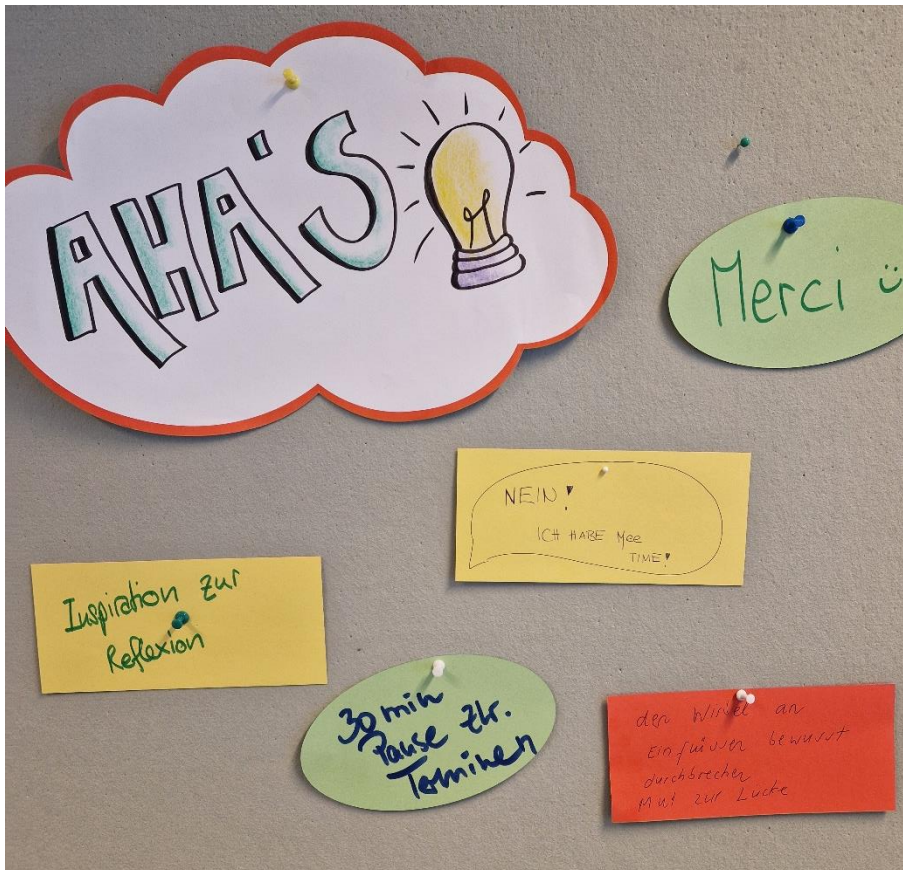 AHA'S
Merci ü
NEIN!
ICH HABE Mee
TIME!
Inspiration zur
Reflexion
30 min
Pause zw.
Terminen
den Wirbel an
Einflüssen bewusst
durchbrechen
Mut zur Lücke